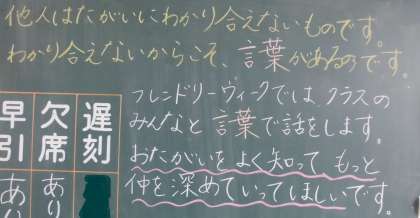 他人はたがいにわかり合えないものです。
わかり合えないからこそ、言葉があるのです。
フレンドリーウィークでは、クラスの
みんなと言葉で話をします。
おたがいをよく知って もっと
仲を深めていってほしいです。
遅刻
欠席
あり
早引
あい